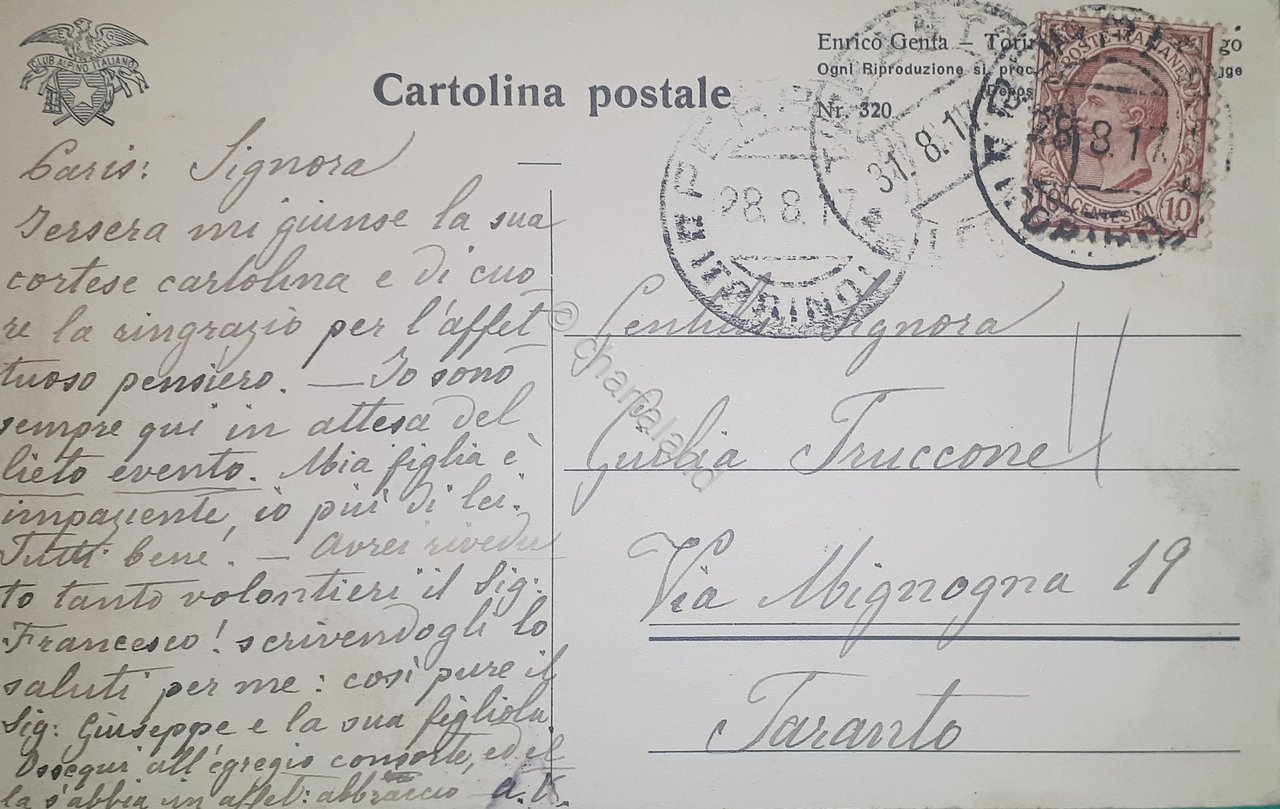 CLUB ALPINO ITALIANO
Cartolina postale
Enrico Genta — Torino
Ogni Riproduzione si
Nr. 320
POSTE ITALIANE
CENTESIMI 10
28.8.17
31.8.17
28.8.17
(TORINO)
Caris: Signora
Iersera mi giunse la sua
cortese cartolina e di cuo
re la ringrazio per l'affet
tuoso pensiero. — Io sono
sempre qui in attesa del
lieto evento. Mia figlia è
impaziente, io più di lei.
Tutti bene. — Avrei rivedu
to tanto volontieri il Sig:
Francesco! scrivendogli lo
saluti per me: così pure il
Sig: Giuseppe e la sua figliola
Ossequi all'egregio consorte, ed el
la s'abbia un affet: abbraccio
Signora
Giulia Truccone
Via Mignogna 19
Taranto
© charfaland